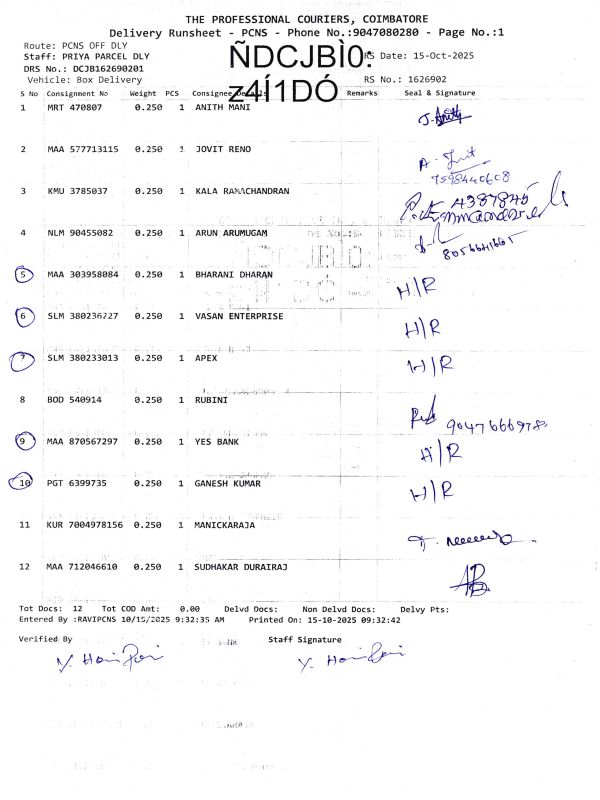 THE PROFESSIONAL COURIERS, COIMBATORE
Delivery Runsheet - PCNS - Phone No.:9047080280 - Page No.:1
Route: PCNS OFF DLY
Staff: PRIYA PARCEL DLY ÑDCJBÌ0: RS Date: 15-Oct-2025
DRS No.: DCJB162690201
Vehicle: Box Delivery z4Í1DÓ RS No.: 1626902
S No Consignment No Weight PCS Consignee Details Remarks Seal & Signature
1 MRT 470807 0.250 1 ANITH MANI J. Anith
2 MAA 577713115 0.250 1 JOVIT RENO
7598440608
3 KMU 3785037 0.250 1 KALA RAMACHANDRAN
4 NLM 90455082 0.250 1 ARUN ARUMUGAM
8056641665
5 MAA 303958084 0.250 1 BHARANI DHARAN H/R
6 SLM 380236727 0.250 1 VASAN ENTERPRISE H/R
7 SLM 380233013 0.250 1 APEX H/R
8 BOD 540914 0.250 1 RUBINI
9 MAA 870567297 0.250 1 YES BANK H/R
10 PGT 6399735 0.250 1 GANESH KUMAR H/R
11 KUR 7004978156 0.250 1 MANICKARAJA
12 MAA 712046610 0.250 1 SUDHAKAR DURAIRAJ
Tot Docs: 12 Tot COD Amt: 0.00 Delvd Docs: Non Delvd Docs: Delvy Pts:
Entered By :RAVIPCNS 10/15/2025 9:32:35 AM Printed On: 15-10-2025 09:32:42
Verified By Staff Signature